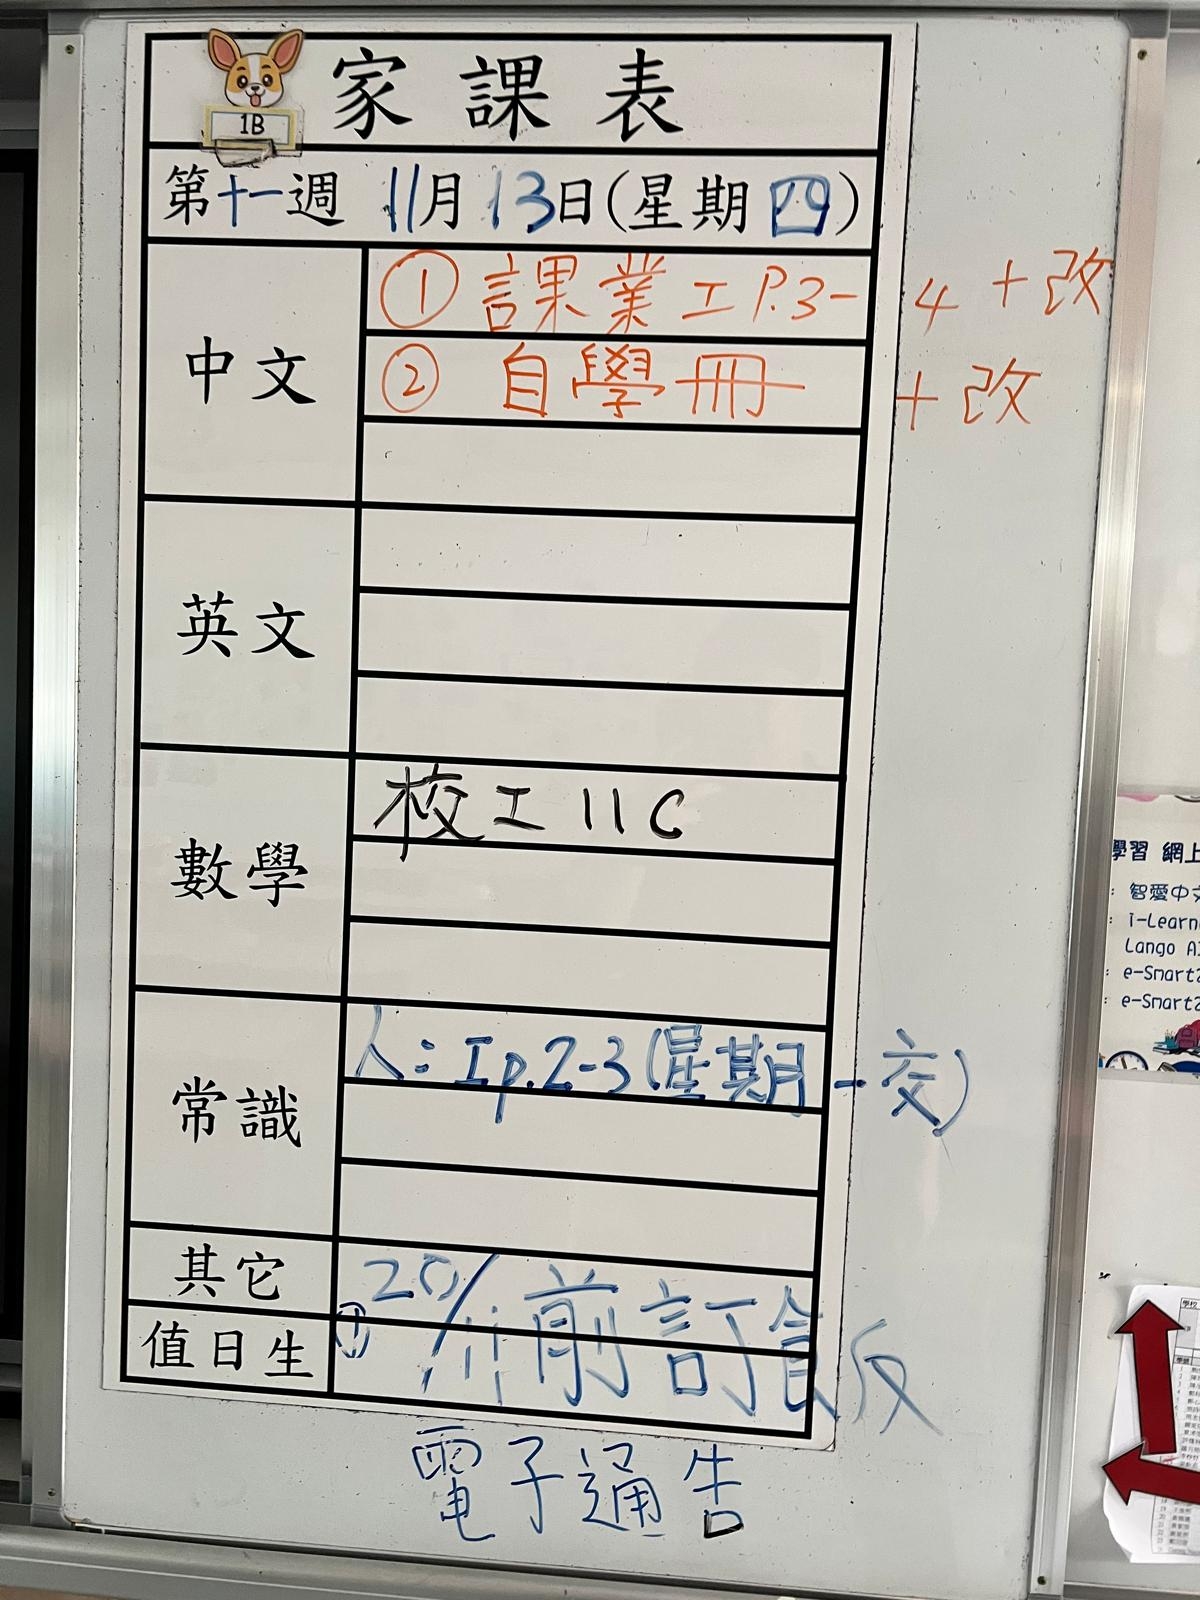 1B
家課表
第十一週 11月13日(星期四)
中文
① 課業工 P.3-4 + 改
② 自學冊 + 改
英文
數學
校工 11C
常識
人: I p.2-3 (星期一交)
其它
① 20/11前訂飯
值日生
電子通告
學習 網上
智愛中文
i-Learn
Lango
e-Smart
e-Smart